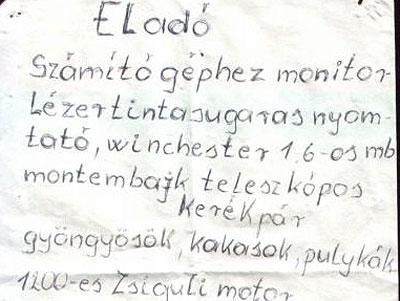 ELadó
Számító géphez monitor
Lézertintasugaras nyom-
tató, winchester 1.6-os mb
montembajk teleszkópos
kerékpár
gyöngyösök, kakasok, pulykák
1200-es Zsiguli motor